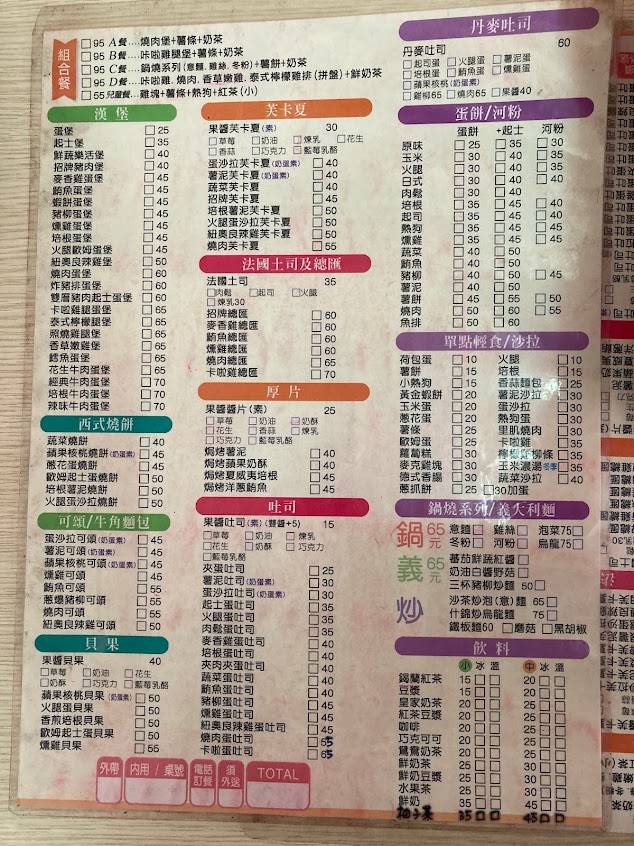 組合餐
□95 A餐...燒肉堡+薯條+奶茶
□95 B餐...咔啦雞腿堡+薯條+奶茶
□95 C餐...鍋燒系列(意麵, 雞絲, 冬粉)+薯餅+奶茶
□95 D餐...咔啦雞. 燒肉. 香草嫩雞. 泰式檸檬雞排(拼盤)+鮮奶茶
□55 兒童餐...雞塊+薯條+熱狗+紅茶(小)
漢堡
蛋堡 □25
起士堡 □35
鮮蔬樂活堡 □40
招牌豬肉堡 □40
麥香雞蛋堡 □45
鮪魚蛋堡 □45
蝦餅蛋堡 □45
豬柳蛋堡 □45
燻雞蛋堡 □45
培根蛋堡 □45
火腿歐姆蛋堡 □50
紐奧良辣雞蛋堡 □50
燒肉蛋堡 □60
炸豬排蛋堡 □60
雙層豬肉起士蛋堡 □60
卡啦雞腿蛋堡 □60
泰式檸檬腿堡 □60
照燒雞腿蛋堡 □60
香草嫩雞蛋堡 □60
鱈魚蛋堡 □60
花生牛肉蛋堡 □70
經典牛肉蛋堡 □70
培根牛肉蛋堡 □70
辣味牛肉蛋堡 □70
西式燒餅
蔬菜燒餅 □40
蘋果核桃燒餅(奶蛋素) □45
蔥花蛋燒餅 □45
歐姆起士蛋燒餅 □50
培根薯泥燒餅 □50
火腿蛋沙拉燒餅 □50
可頌/牛角麵包
蛋沙拉可頌(奶蛋素) □45
薯泥可頌(奶蛋素) □45
蘋果核桃可頌(奶蛋素) □45
燻雞可頌 □45
鮪魚可頌 □50
蔥爆豬柳可頌 □50
燒肉可頌 □50
紐奧良辣雞可頌 □50
貝果
果醬貝果 40
□草莓 □奶油 □花生
□奶酥 □巧克力 □藍莓乳酪
蘋果核桃貝果(奶蛋素) □50
火腿蛋貝果 □50
香煎培根貝果 □50
歐姆起士蛋貝果 □50
燻雞貝果 □55
芙卡夏
果醬芙卡夏(素) 30
□草莓 □奶油 □煉乳 □花生
□香蒜 □巧克力 □藍莓乳酪
蛋沙拉芙卡夏(奶蛋素) □40
薯泥芙卡夏(奶蛋素) □40
蔬菜芙卡夏 □40
招牌芙卡夏 □45
培根薯泥芙卡夏 □50
火腿蛋沙拉芙卡夏 □50
紐奧良辣雞芙卡夏 □50
燒肉芙卡夏 □55
法國土司及總匯
法國土司 35
□肉鬆 □起司 □火腿
□煉乳30
招牌總匯 □60
麥香雞總匯 □60
鮪魚總匯 □60
燻雞總匯 □60
燒肉總匯 □65
卡啦雞總匯 □70
厚片
果醬醬片(素) 25
□草莓 □奶油 □奶酥
□花生 □香蒜 □煉乳
□巧克力 □藍莓乳酪
焗烤薯泥 □40
焗烤蘋果奶酥 □40
焗烤夏威夷培根 □40
焗烤洋蔥鮪魚 □40
吐司
果醬吐司(素)(雙醬+5) 15
□草莓 □奶油 □煉乳
□花生 □奶酥 □巧克力
□藍莓乳酪
夾蛋吐司 □25
薯泥吐司(奶蛋素) □30
蛋沙拉吐司(奶蛋素) □30
起士蛋吐司 □30
火腿蛋吐司 □30
肉鬆蛋吐司 □30
麥香雞蛋吐司 □40
培根蛋吐司 □40
夾肉夾蛋吐司 □40
蔬菜蛋吐司 □40
鮪魚蛋吐司 □40
豬柳蛋吐司 □40
燻雞蛋吐司 □45
紐奧良辣雞蛋吐司 □45
燒肉蛋吐司 □55
卡啦蛋吐司 □65
丹麥吐司
丹麥吐司 60
□起司蛋 □火腿蛋 □薯泥蛋
□培根蛋 □鮪魚蛋 □燻雞蛋
□蘋果核桃(奶蛋素)
□雞柳65 □燒肉65 □果醬40
蛋餅/河粉
蛋餅 +起士 河粉
原味 □25 □35 □30
玉米 □30 □40 □35
火腿 □30 □40 □35
日式 □30 □40 □40
肉鬆 □30 □40
培根 □35 □45 □40
起司 □35 □45 □40
熱狗 □35 □45 □45
燻雞 □35 □45 □45
蔬菜 □40 □50
鮪魚 □40 □50
豬柳 □40 □50 □45
薯泥 □40 □50
薯餅 □45 □55 □50
燒肉 □50 □60 □55
魚排 □50 □60
單點輕食/沙拉
荷包蛋 □10 火腿 □10
薯餅 □15 培根 □15
小熱狗 □15 香蒜麵包 □25
黃金蝦餅 □30 薯泥沙拉 □30
玉米蛋 □30 蛋沙拉 □30
蔥花蛋 □30 熱狗蛋 □30
薯條 □30 里肌燒肉 □30
歐姆蛋 □30 卡啦雞 □35
蘿蔔糕 □30 檸檬鮮柳條 □35
麥克雞塊 □30 玉米濃湯冬季 □35
德式香腸 □30 蔬菜沙拉 □40
蔥抓餅 □30加蛋
鍋燒系列/義大利麵
鍋 65元 意麵□ 雞絲□ 泡菜75□
冬粉□ 河粉□ 烏龍75□
義 65元 蕃茄鮮蔬紅醬□
奶油白醬野菇□
三杯豬柳炒麵 50□
炒 沙茶炒泡(意)麵 65□
什錦炒烏龍麵 75□
鐵板麵50□蘑菇 □黑胡椒
飲料
小 冰 溫 中 冰 溫
錫蘭紅茶 15□□ 20□□
豆漿 15□□ 20□□
皇家奶茶 20□□ 25□□
紅茶豆漿 20□□ 25□□
咖啡 20□□ 25□□
巧克可可 20□□ 25□□
鴛鴦奶茶 25□□ 30□□
鮮奶茶 25□□ 30□□
鮮奶豆漿 25□□ 30□□
水果茶 25□□ 30□□
鮮奶 35□□ 45□□
柚子茶 35□□ 45□□
外帶
內用/桌號
電話訂餐
須外送
TOTAL